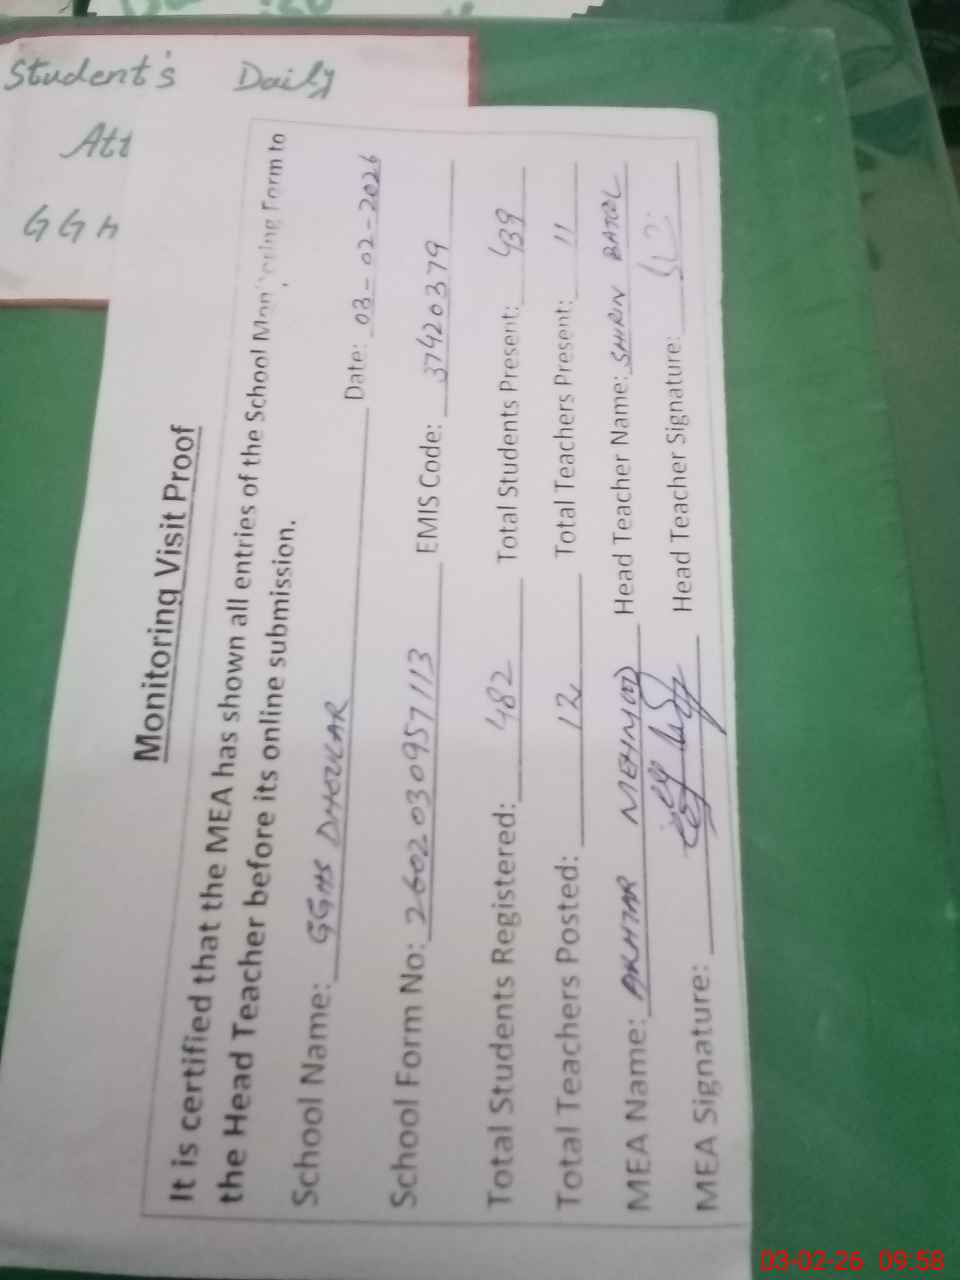 Student's Daily
Att
GGH
Monitoring Visit Proof
It is certified that the MEA has shown all entries of the School Monitoring Form to
the Head Teacher before its online submission.
School Name: GGHS DHOULAR Date: 03-02-2026
School Form No: 2602030957113 EMIS Code: 37420379
Total Students Registered: 482 Total Students Present: 439
Total Teachers Posted: 12 Total Teachers Present: 11
MEA Name: AKHTAR MEHMOOD Head Teacher Name: SHIRIN BATOOL
MEA Signature: Head Teacher Signature:
03-02-26 09:58